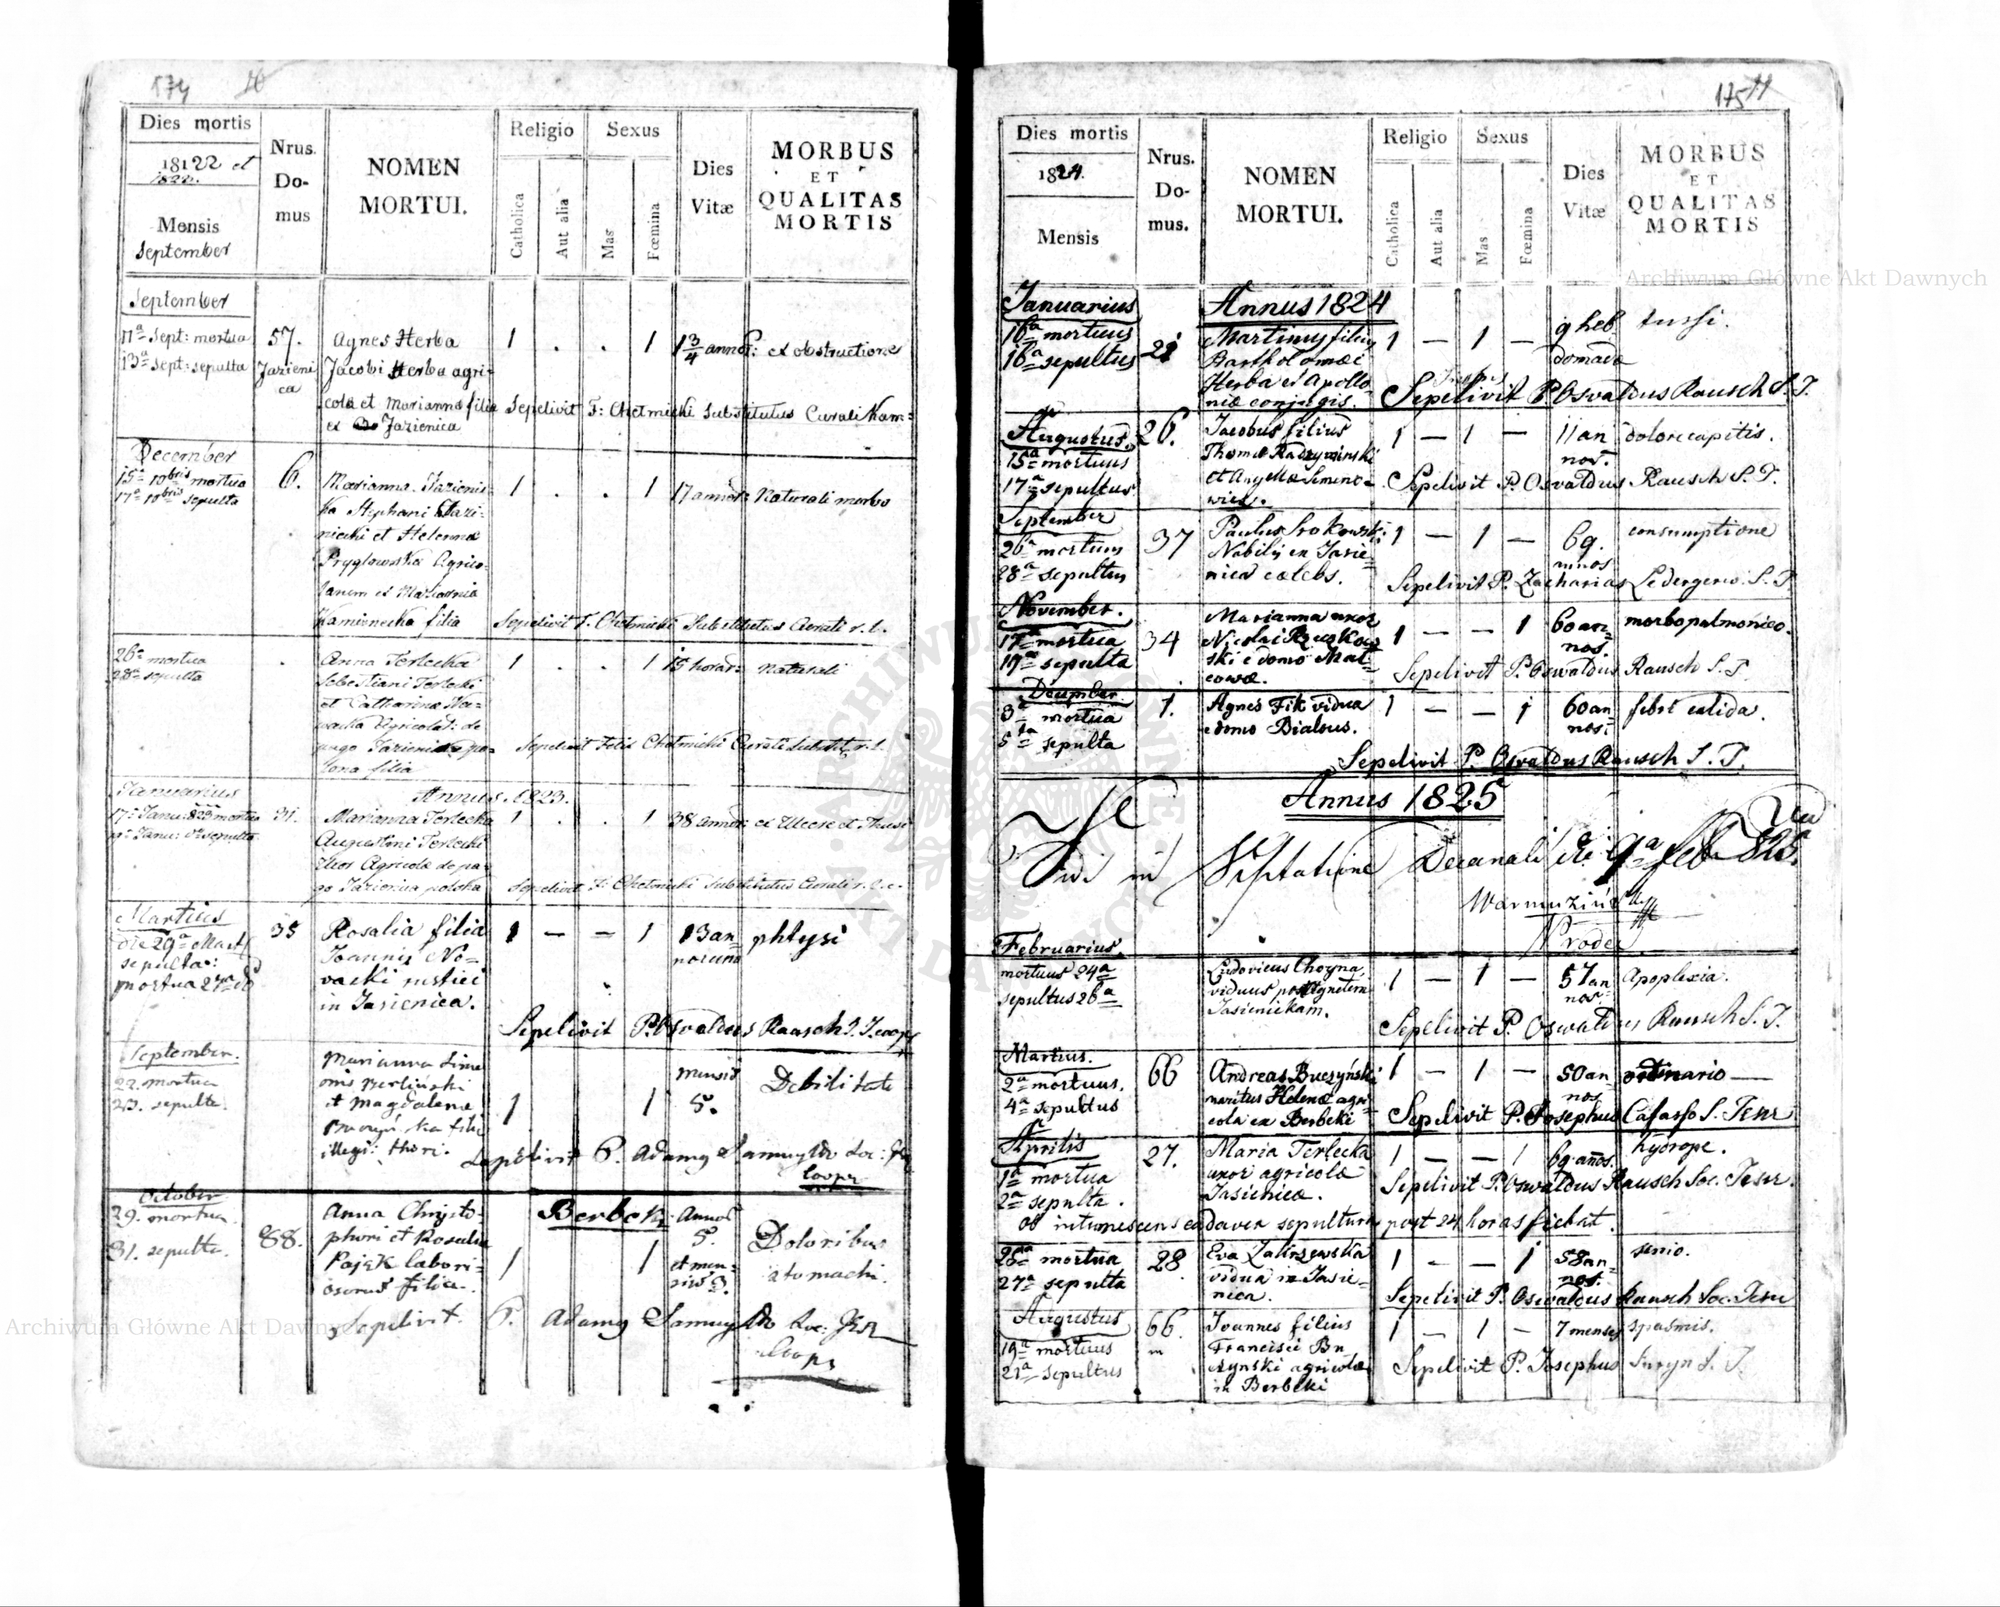 174 10
Dies mortis
1822 et
1822.
Mensis
September
Nrus.
Do-
mus
NOMEN
MORTUI.
Religio
Catholica
Aut alia
Sexus
Mas
Fœmina
Dies
Vitæ
MORBUS
ET
QUALITAS
MORTIS
September
11ª Sept: mortua
13ª Sept: sepulta
57.
Jazieni
ca
Agnes Herba
Jacobi Herba agri-
cola et Marianna filia
ex Jazienica
1 . . 1
1 3/4 annor: ex obstructione
Sepelivit F: Chetmicki Substitutus Curati
December
15ª 10bris mortua
17ª 10bris sepulta
6.
Marianna Jazienis
ka Stephani Jazi-
nicki et Helenna
Pryglowska Agrico-
lanem ex
Kamienecka filia
1 . . 1 17 annor: Naturali morbo
Sepelivit F. Chetmicki Substitutus Curati r. l.
26ª mortua
28ª sepulta
Anna Terlecka
Sebestiani Terlecki
et Catharina No-
wacka Agricolar: de
pago Jazienica po-
lona filia
1 . . 1 15 horar: Naturali
Sepelivit Felix Chetmicki Curati Substit. r. l.
Januarius
Annus. 1823.
17ª Janu: 823 mortua
31.
Marianna Terlecka
Augustini Terlecki
Uxor Agricola de pa-
go Jazienica polska
1 . . 1 38 annor: ex Ulcere et Tussi
Sepelivit F: Chetmicki Substitutus Curati r. l.
Martius
die 29ª Mart
sepulta:
mortua 27ª
35
Rosalia filia
Joannis No-
vacki rustici
in Jasienica.
1 — — 1 13 an
norum
phtysi
Sepelivit P. Osvaldus Rausch S. J. coop
September.
22. mortua
23. sepulta.
Marianna Sime
onis Berlinski
et Magdalena
filia
illegi: thori.
1 1
mensis
5.
Debilitate
Sepelivit P. Adamus Samuylo Soc: Jesu
Coopr
October
29. mortua
31. sepulta.
88.
Berbeki
Anna Christo-
phori et Rosalia
Pajęk labori-
osorum filia.
1 1
Annos
5.
et men-
sis 3.
Doloribus
stomachi.
Sepelivit. P. Adamus Samuylo Soc: Jesu
Coopr
175 11
Dies mortis
1824.
Mensis
Nrus.
Do-
mus.
NOMEN
MORTUI.
Religio
Catholica
Aut alia
Sexus
Mas
Fœmina
Dies
Vitæ
MORBUS
ET
QUALITAS
MORTIS
Januarius
Annus 1824
16ª mortuus
18ª sepultus
21
Martinus filius
Bartholomæi
Herba et Apollo
niæ conjugis.
1 — 1 — 9 heb
domadæ
tussi.
Sepelivit P. Osvaldus Rausch S. J.
Augustus.
15ª mortuus
17ª sepultus
26.
Jacobus filius
Thomæ Radzyminski
et Angellæ Simeno-
wicz.
1 — 1 — 11 an
nor.
dolore capitis.
Sepelivit P. Osvaldus Rausch S. J.
September
26ª mortuus
28ª sepultus
37
Paulus Srokowski
Nobilis ex Jasie-
nica cælebs.
1 — 1 — 69.
annos
consumptione
Sepelivit P. Zacharias Ledergerw. S. J.
November.
17ª mortua
19ª sepulta
34
Marianna uxor
Nicolai Rzuskow
ski e domo Mal-
cowæ.
1 — — 1 60 an-
nos.
morbo pulmonico.
Sepelivit P. Oswaldus Rausch S. J.
December
3ª mortua
5ta sepulta
1.
Agnes Fik vidua
e domo Bialous.
1 — — 1 60 an
nos.
febri calida.
Sepelivit P. Osvaldus Rausch S. J.
Annus 1825
Vidi in Visitatione Decanali die 9ª feb 825.
Februarius.
mortuus 24ª
sepultus 26ª
Ludovicus Choyna,
viduus post Agnetem
Jasienickam.
1 — 1 — 57 an
nos.
Apoplexia.
Sepelivit P. Oswaldus Rausch S. J.
Martius.
2ª mortuus.
4ª sepultus
66
Andreas Buczyński
maritus Helenæ agri
cola ex Berbeki
1 — 1 — 50 an
nos
ordinario —
Sepelivit P. Josephus Cafasso S. Jesu
Aprilis
1ª mortua
2ª sepulta.
27.
Maria Terlecka
uxor agricolæ
Jasienicæ.
1 — — 1 69 años.
hydrope.
Sepelivit P. Oswaldus Rausch Soc. Jesu.
ob intumescens cadaver sepultura post 24 horas fiebat.
25ª mortua
27ª sepulta
28
Eva Zakrzewska
vidua in Jasie-
nica.
1 — — 1 58 an-
nos.
senio.
Sepelivit P. Oswaldus Rausch Soc. Jesu
Augustus
19ª mortuus
21ª sepultus
66.
Joannes filius
Francisci Bu
czynski agricolæ
in Berbeki
1 — 1 — 7 menses
spasmis.
Sepelivit P. Josephus Suryn S. J.
Archiwum Główne Akt Dawnych
Archiwum Główne Akt Dawnych